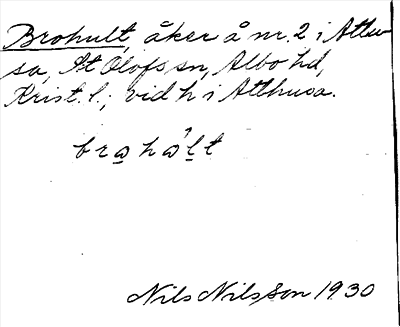 Brohult, åker å nr. 2 i Attu-
sa, St Olofs sn, Albo hd,
Krist. l.; vid h i Atthusa.
brohölt
Nils Nilsson 1930